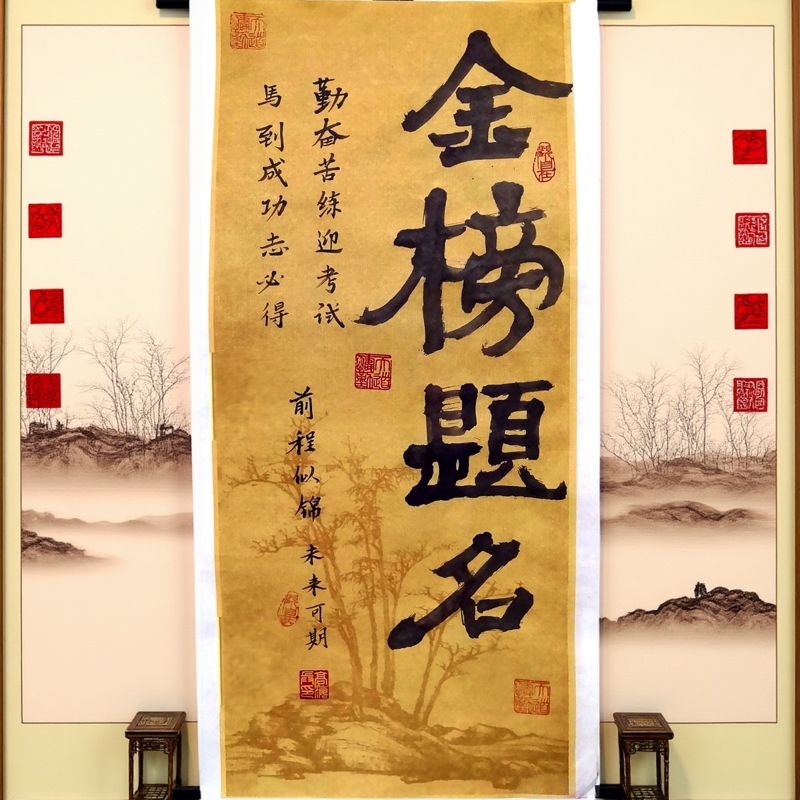 金榜題名
勤奋苦练迎考试
馬到成功志必得
前程似锦未来可期